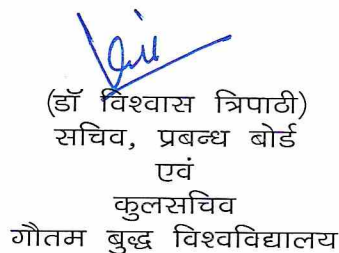 (डॉ विश्वास त्रिपाठी)
सचिव, प्रबन्ध बोर्ड
एवं
कुलसचिव
गौतम बुद्ध विश्वविद्यालय